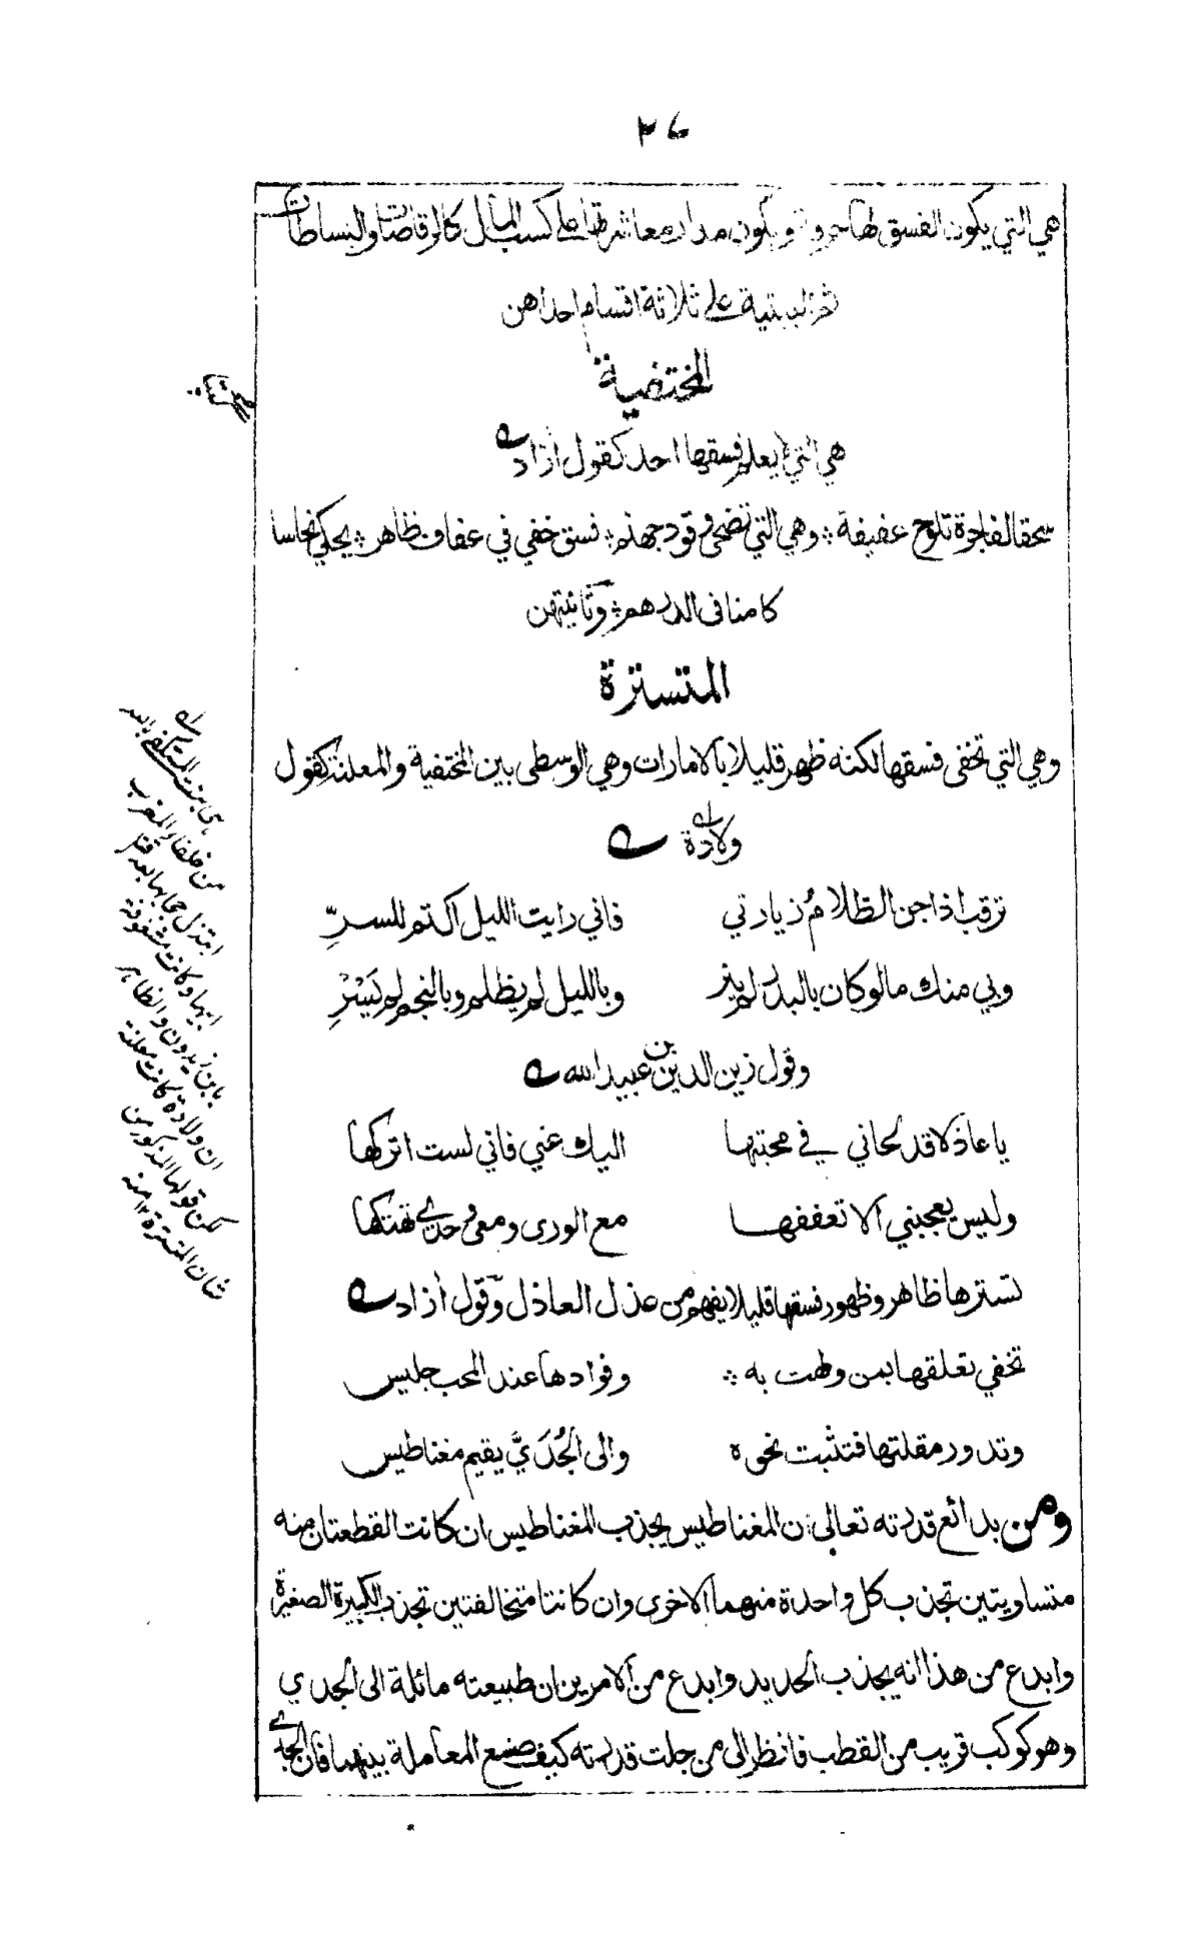 ٢٦
هي التي يكون الفسق لها حرفة ويكون مدار معاشرتها على كسب المال كالرقاصات والبساطات
ثم البيتية على ثلاثة اقسام احداهن
المختفية
هي التي لا يعلم فسقها احد كقول آزاد
سحقا لفاجرة تلوح عفيفة ؞ وهي التي تضحى وقود جهنم ؞ فسق خفي في عفاف ظاهر ؞ يحكي نحاسا
كامنا في الدرهم ؞ وثانيتهن
المتسترة
وهي التي تخفى فسقها لكنه ظهر قليلا بالامارات وهي الوسطى بين المختفية والمعلنة كقول
ولادة
ترقب اذا جن الظلامُ زيارتي فاني رايت الليل اكتم للسرِّ
وبي منك مالو كان بالبدر لم ينر وبالليل لم يظلم وبالنجم لم يَسْرِ
وقول زين الدين بن عبيد الله
يا عاذلا قد لحاني في محبتها اليك عني فاني لست اتركها
وليس يعجبني الا تعففها مع الورى ومعي وحدي تهتكها
تسترها ظاهر وظهور فسقها قليلا يفهم من عذل العاذل وقول آزاد
تخفي تعلقها بمن ولهت به ؞ وفوادها عند المحب جليس
وتدور مقلتها فتثبت نحوه والى الجُدَيَّ يقيم مغناطيس
ومن بدائع قدرته تعالى ان المغناطيس يجذب المغناطيس ان كانت القطعتان منه
متساويتين تجذب كل واحدة منهما الاخرى وان كانتا متخالفتين تجذب الكبيرة الصغيرة
وابدع من هذا انه يجذب الحديد وابدع من الامرين ان طبيعته مائلة الى الجدي
وهو كوكب قريب من القطب فانظر الى من جلت قدرته كيف صنع المعاملة بينهما فان الجدي
هي بنت المستكفي بالله
من خلفاء المغرب
ابتذل حجابها بعد قتل
ابيها وكانت مشغوفة
بابن زيدون والظاهر
ان ولادة كانت معلنة
لكن قولها المذكور من
شان المتسترة ١٢ منه